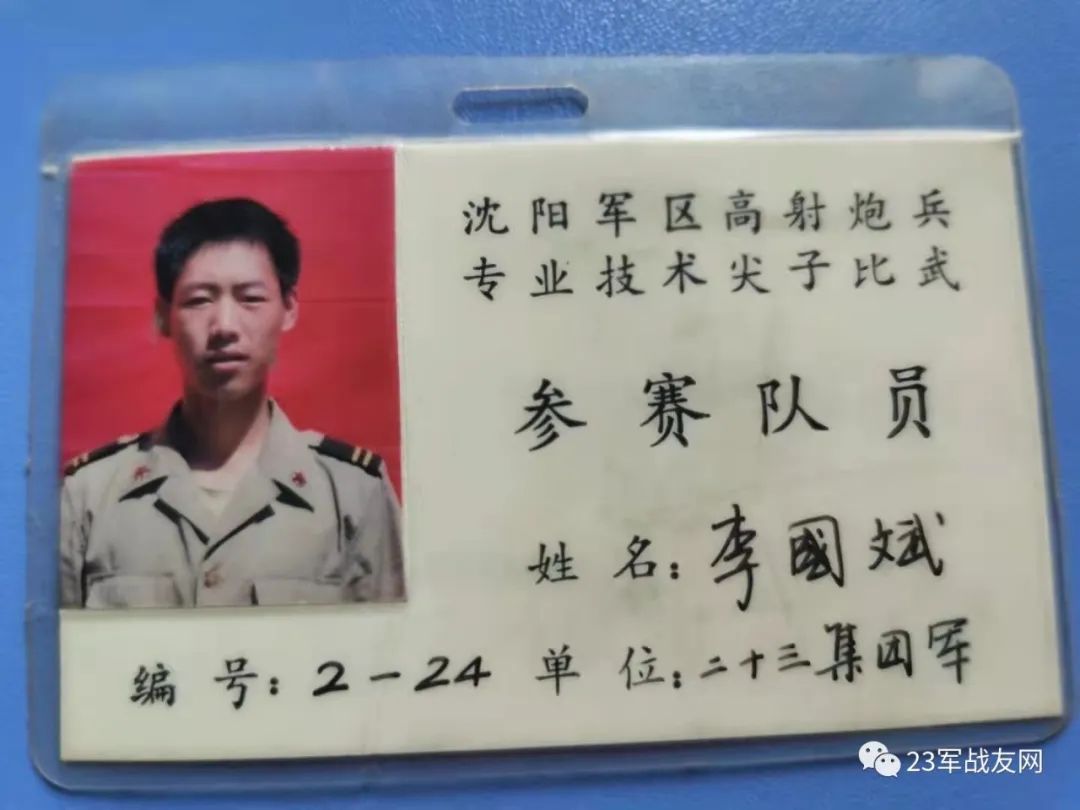 沈阳军区高射炮兵
专业技术尖子比武
参赛队员
姓名:李國斌
编号:2-24 单位:二十三集团军
23军战友网